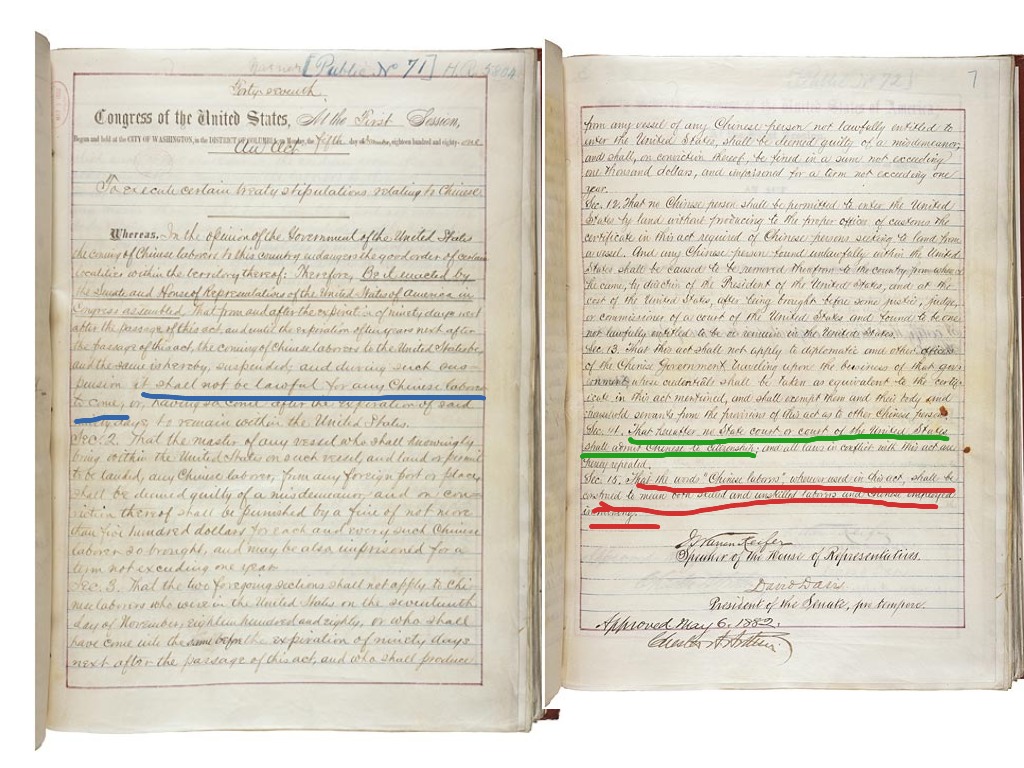 [Public No 71] H.R. 5804
Forty-seventh
Congress of the United States, At the First Session,
Begun and held at the CITY OF WASHINGTON, in the DISTRICT OF COLUMBIA, on Monday, the fifth day of December, eighteen hundred and eighty-one
An Act
To execute certain treaty stipulations relating to Chinese.
Whereas, In the opinion of the Government of the United States
the coming of Chinese laborers to this country endangers the good order of certain
localities within the territory thereof: Therefore, Be it enacted by
the Senate and House of Representatives of the United States of America in
Congress assembled, That from and after the expiration of ninety days next
after the passage of this act, and until the expiration of ten years next after
the passage of this act, the coming of Chinese laborers to the United States be,
and the same is hereby, suspended; and during such sus-
pension it shall not be lawful for any Chinese laborer
to come, or, having so come after the expiration of said
ninety days, to remain within the United States.
Sec. 2. That the master of any vessel who shall knowingly
bring within the United States on such vessel, and land or permit
to be landed, any Chinese laborer, from any foreign port or place,
shall be deemed guilty of a misdemeanor, and on con-
viction thereof shall be punished by a fine of not more
than five hundred dollars for each and every such Chinese
laborer so brought, and may be also imprisoned for a
term not exceeding one year.
Sec. 3. That the two foregoing sections shall not apply to Chi-
nese laborers who were in the United States on the seventeenth
day of November, eighteen hundred and eighty, or who shall
have come into the same before the expiration of ninety days
next after the passage of this act, and who shall produce
7
from any vessel of any Chinese person not lawfully entitled to
enter the United States, shall be deemed guilty of a misdemeanor,
and shall, on conviction thereof, be fined in a sum not exceeding
one thousand dollars, and imprisoned for a term not exceeding one
year.
Sec. 12. That no Chinese person shall be permitted to enter the United
States by land without producing to the proper officer of customs the
certificate in this act required of Chinese persons seeking to land from
a vessel. And any Chinese person found unlawfully within the United
States shall be caused to be removed therefrom to the country from whence
he came, by direction of the President of the United States, and at the
cost of the United States, after being brought before some justice, judge,
or commissioner of a court of the United States and found to be one
not lawfully entitled to be or remain in the United States.
Sec. 13. That this act shall not apply to diplomatic and other officers
of the Chinese Government traveling upon the business of that gov-
ernment, whose credentials shall be taken as equivalent to the certif-
icate in this act mentioned, and shall exempt them and their body and
household servants from the provisions of this act as to other Chinese persons.
Sec. 14. That hereafter no State court or court of the United States
shall admit Chinese to citizenship; and all laws in conflict with this act are
hereby repealed.
Sec. 15. That the words "Chinese laborers", wherever used in this act, shall be
construed to mean both skilled and unskilled laborers and Chinese employed
in mining.
J. Warren Keifer
Speaker of the House of Representatives.
David Davis
President of the Senate, pro tempore.
Approved May 6, 1882.
Chester A. Arthur